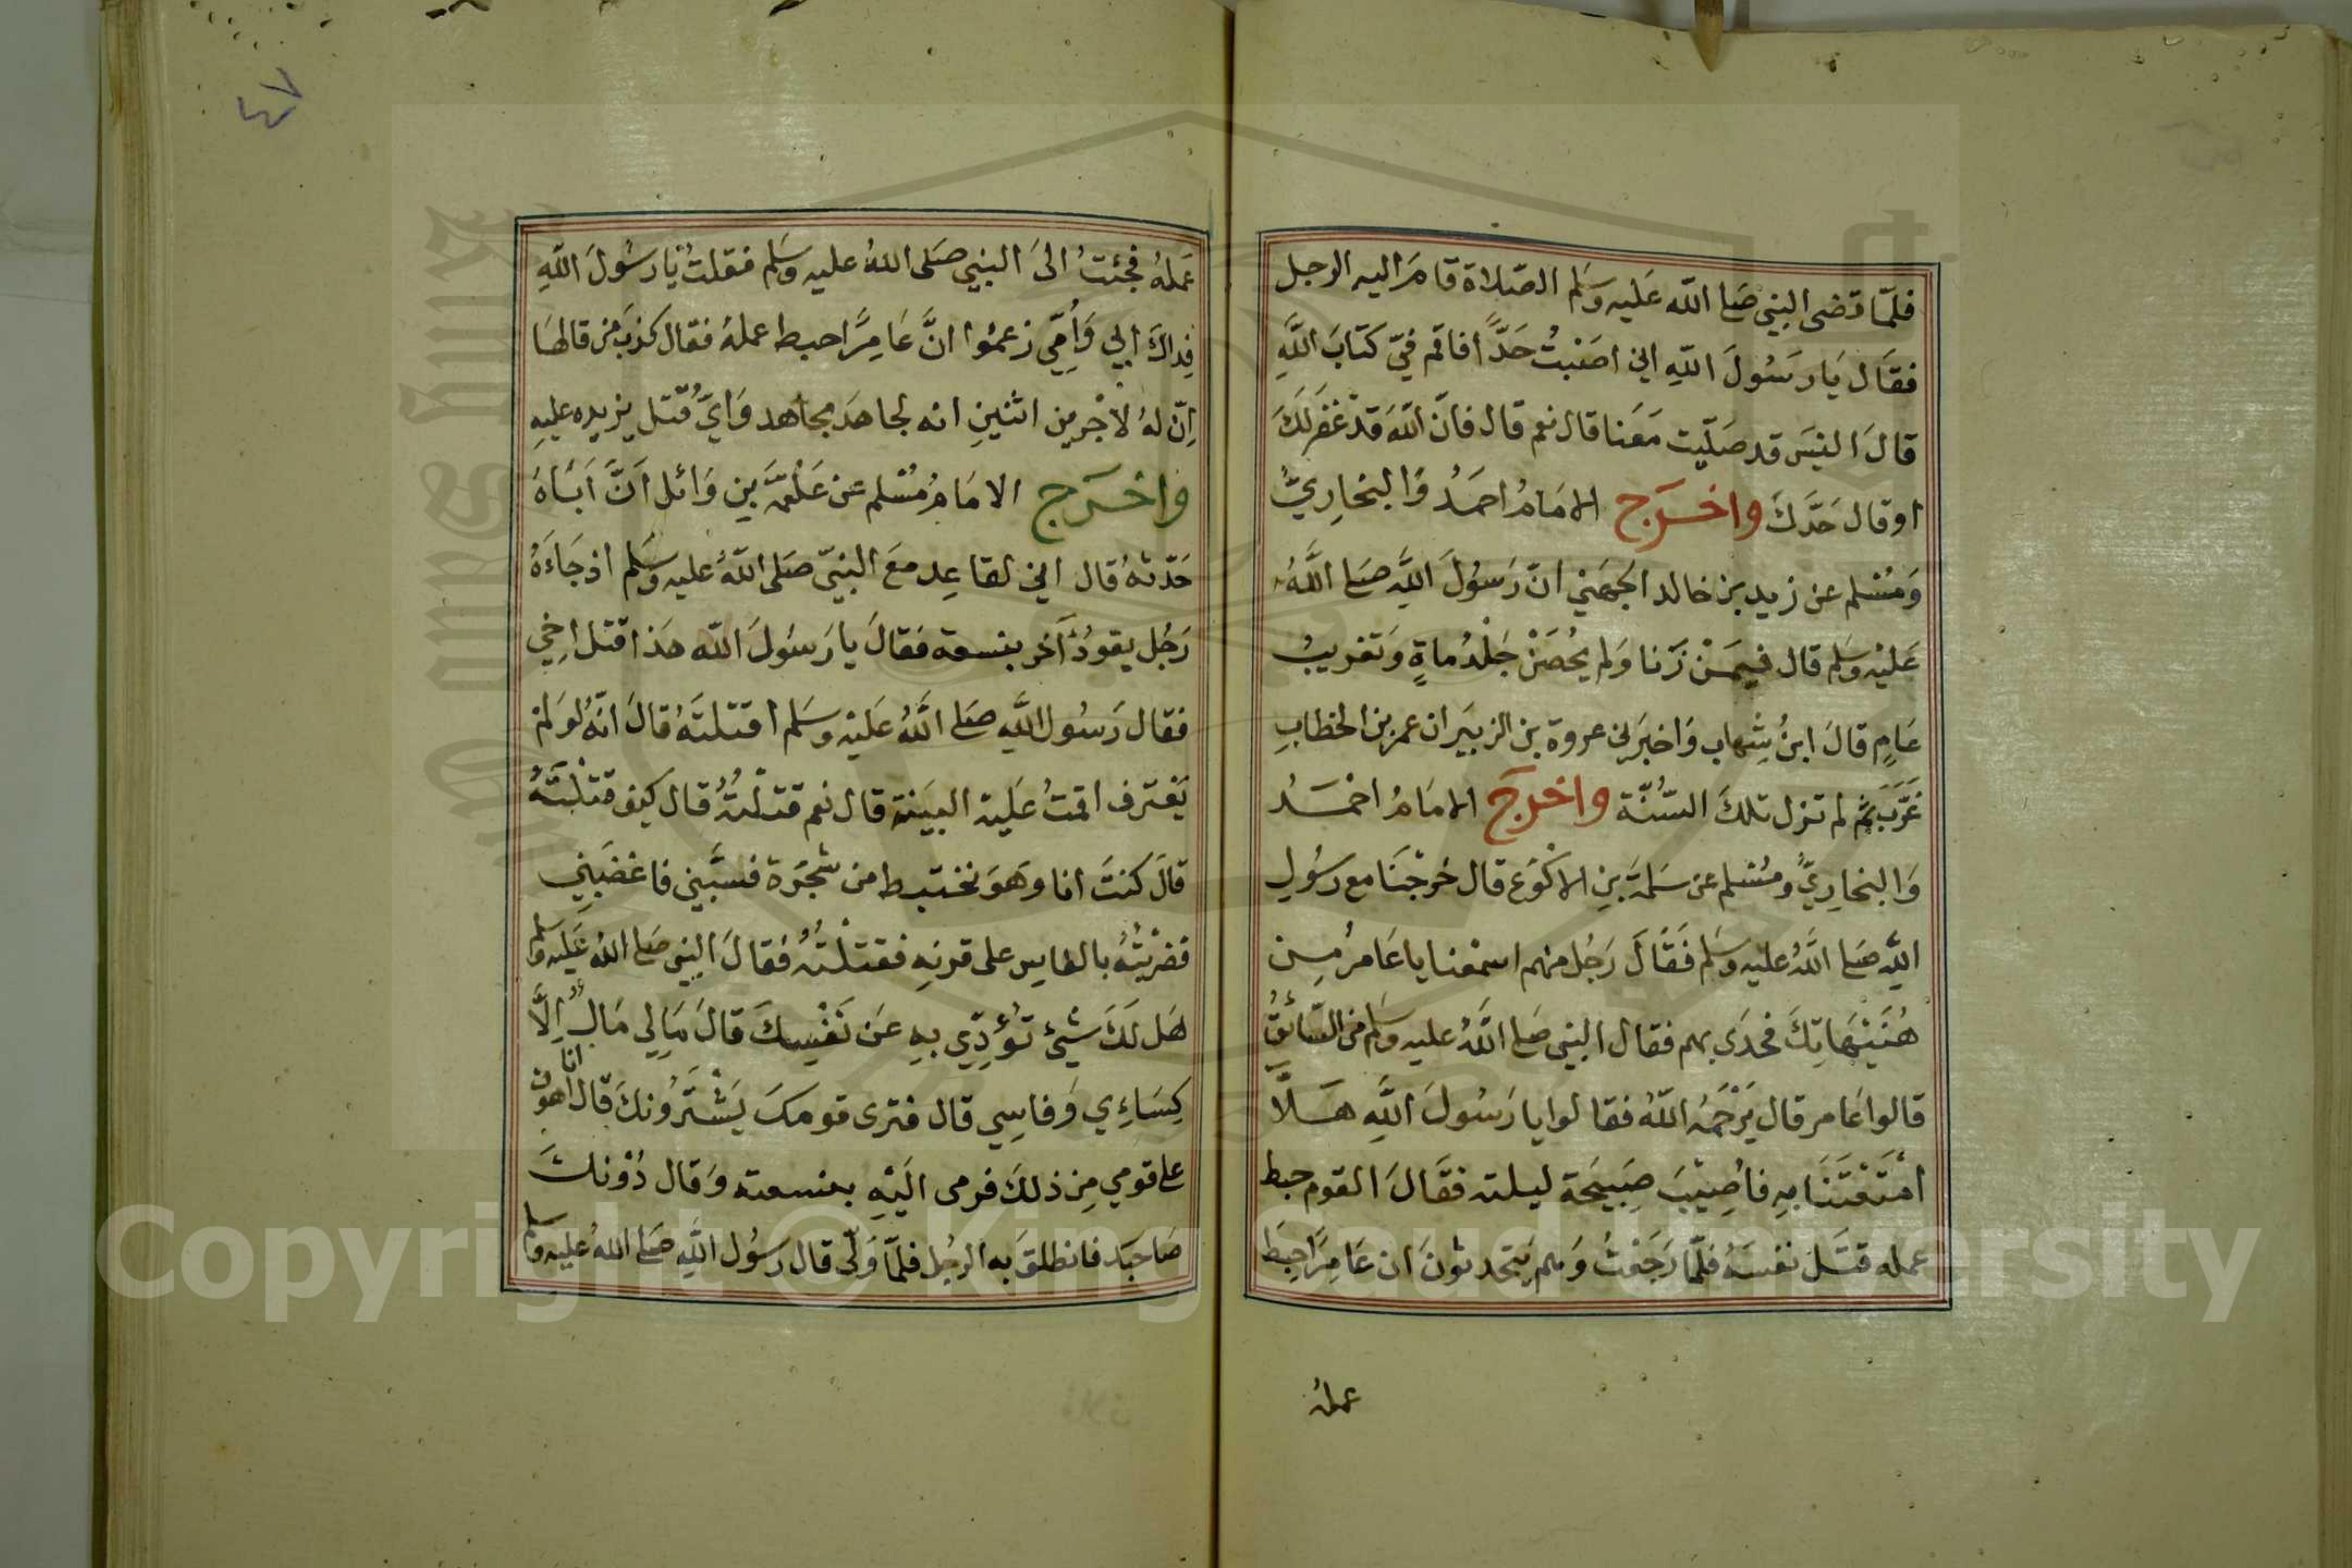 فلمّا قضى النبي صَلى اللّه عَليه وسَلم الصّلاة قامَ اليه الرجل
فقَال يَا رسَوُلَ اللّهِ اني اصَبْتُ حَدًّا فاقم فيّ كتَابَ اللَّهِ
قالَ اليسَ قد صَلّيت مَعَنا قال نعم قال فانّ اللّهَ قدْ غفَر لَكَ
او قال حَدَّكَ واخرَج الامَامُ احمَدُ وَالبخاريُّ
وَمُسْلم عن زيد بن خالد الجهَنيْ انّ رَسوُلَ اللَّهِ صَلى اللَّهُ
عَليْه وسَلم قال فيمَنْ زَنا وَلم يُحصَنْ جَلْدُ ماةٍ وَتَغريبُ
عَامٍ قالَ ابنُ شِهاب وَاخبَرَني عروة بن الزبيَر ان عمر بن الخطابِ
غَرَّبَ ثم لم تزل تلكَ السُّنّة واخرَجَ الامَامُ احْمَدُ
وَالبخارِيُّ ومُسْلم عن سَلمَة بَنِ الاكْوَع قال خرَجْنَا مع رسُولِ
اللّهِ صَلى اللَّهُ عليه وسَلم فَقَالَ رَجُل منهم اسمعْنا يا عَامرُ مِن
هُنَيْهَاتِكَ فحَدَى بهم فقال النبي صَلى اللَّهُ عليه وسَلم من السّائقُ
قالوا عَامر قال يَرْحَمُه اللّهُ فقالوا يا رَسُولَ اللَّهِ هَلَّا
امْتَعْتَنَا بهِ فاُصِيْبَ صِبَيحَة ليلته فقَالَ القوم حبط
عمله قتَل نفسَهُ فلمّا رَجَعْتُ وَهم يَتحدثونَ ان عَامِرًا حِبَط
عملهُ
٤٧
عَملهُ فجئتُ الىَ النبي صَلى اللهُ عليه وسَلم فقلتُ يَا رسُولَ اللّهِ
فِداكَ ابي وَاُمّي زعمُوا انَّ عَامِرًا حبط عملهُ فقال كذبَ من قالهَا
اِنّ لهُ لاجْرين اثنينِ انه لجاهَد مجاهد وَايّ قتل يزيده عليهِ
واخرَج الامَامُ مُسْلم عن عَلْقمَة بن وَائل اَنَّ اَبَاهُ
حَدّثهُ قال اني لقاعِد معَ النبيّ صَلى اللّهُ عليه وسَلم اذ جَاءَهُ
رَجُل يقودُ آخر بنسعة فقالَ يا رَسُولَ اللّه هَذا قتل اخِي
فقال رَسُول اللَّهِ صَلى اللَّهُ عَليْه وسَلم اقتلتَهُ قالَ انّهُ لو لمْ
يَعترف اقمتُ عَليْه البيَنة قال نعم قتلْتُهُ قال كيف قتلْتَهُ
قالَ كنتَ انا وهَوَ نختبط من شجَرَة فسَبَّني فاغضَبَنيِ
فضربْتُهُ بالفاسِ على قرنهِ فقتلْتُهُ فقالَ النبي صَلى اللهُ عَليْه وسلم
هَل لَكَ شَيْئ تُؤدِّي بهِ عَن نَفْسِكَ قالَ مَالِي مَالٌ اِلَّا
كِسَاءِي وَفاسِي قال فترى قومكَ يَشْتَرُونكَ قال انا اهون
على قومي مِن ذلكَ فرمى اليَْهِ بنسعته وَقال دُوْنكَ
صَاحبَك فانطلقَ به الرجُل فلمّا وَلّى قال رسُول اللَّهِ صَلى اللهُ عليه وسلم
Copyright © King Saud University